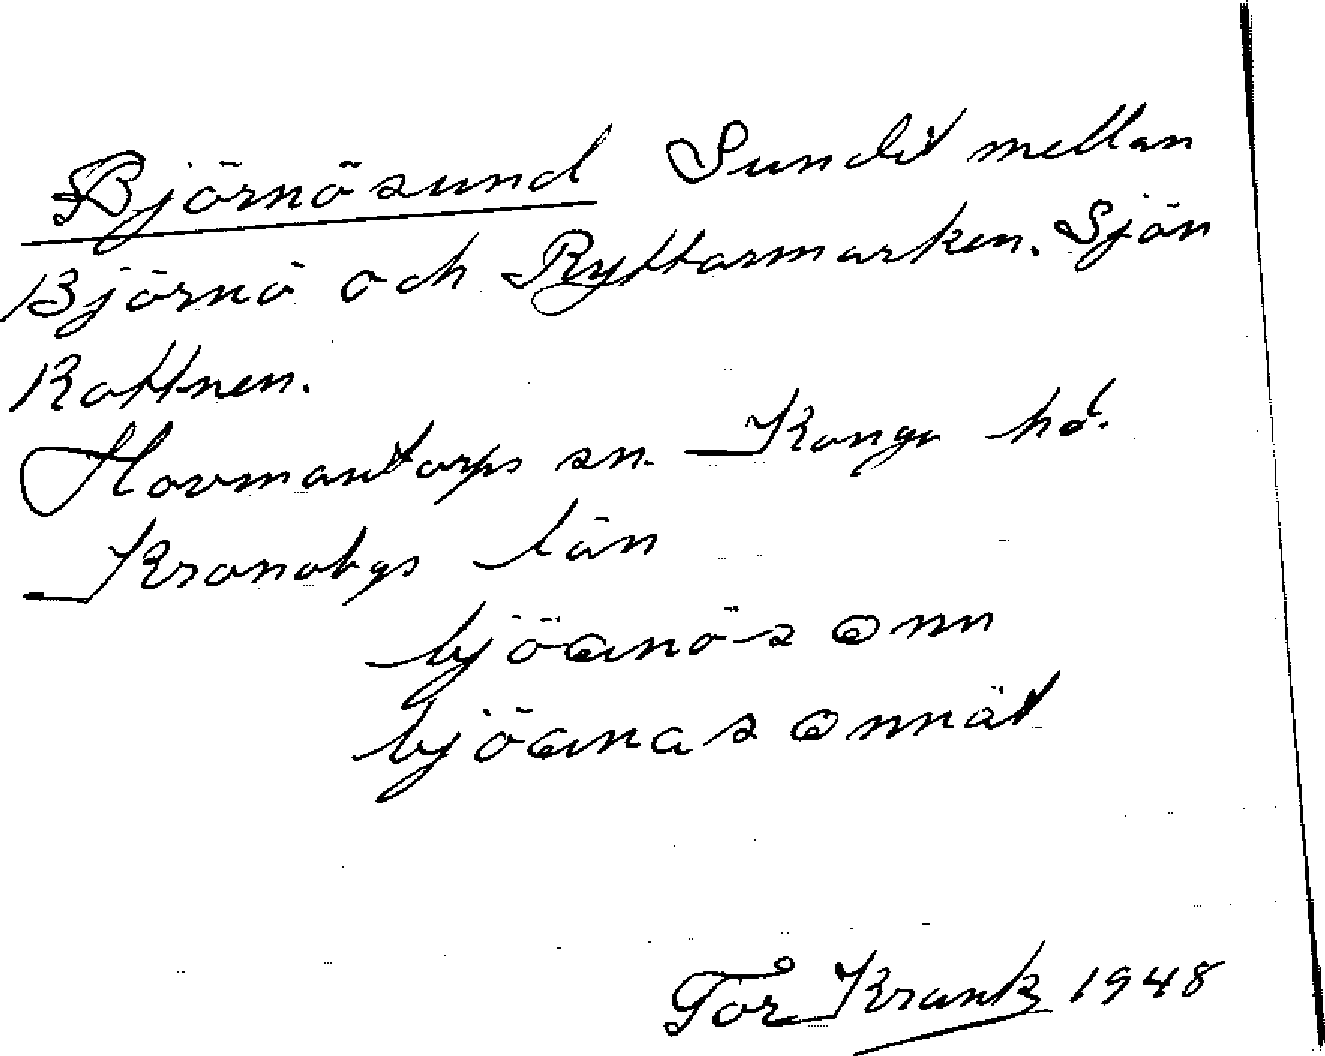 Björnösund Sundet mellan
Björnö och Ryttarmarken. Sjön
Rottnen.
Hovmantorps sn. Konga hd.
Kronobgs län
bjöanös onn
bjöanas onnät
Tor Krank 1948